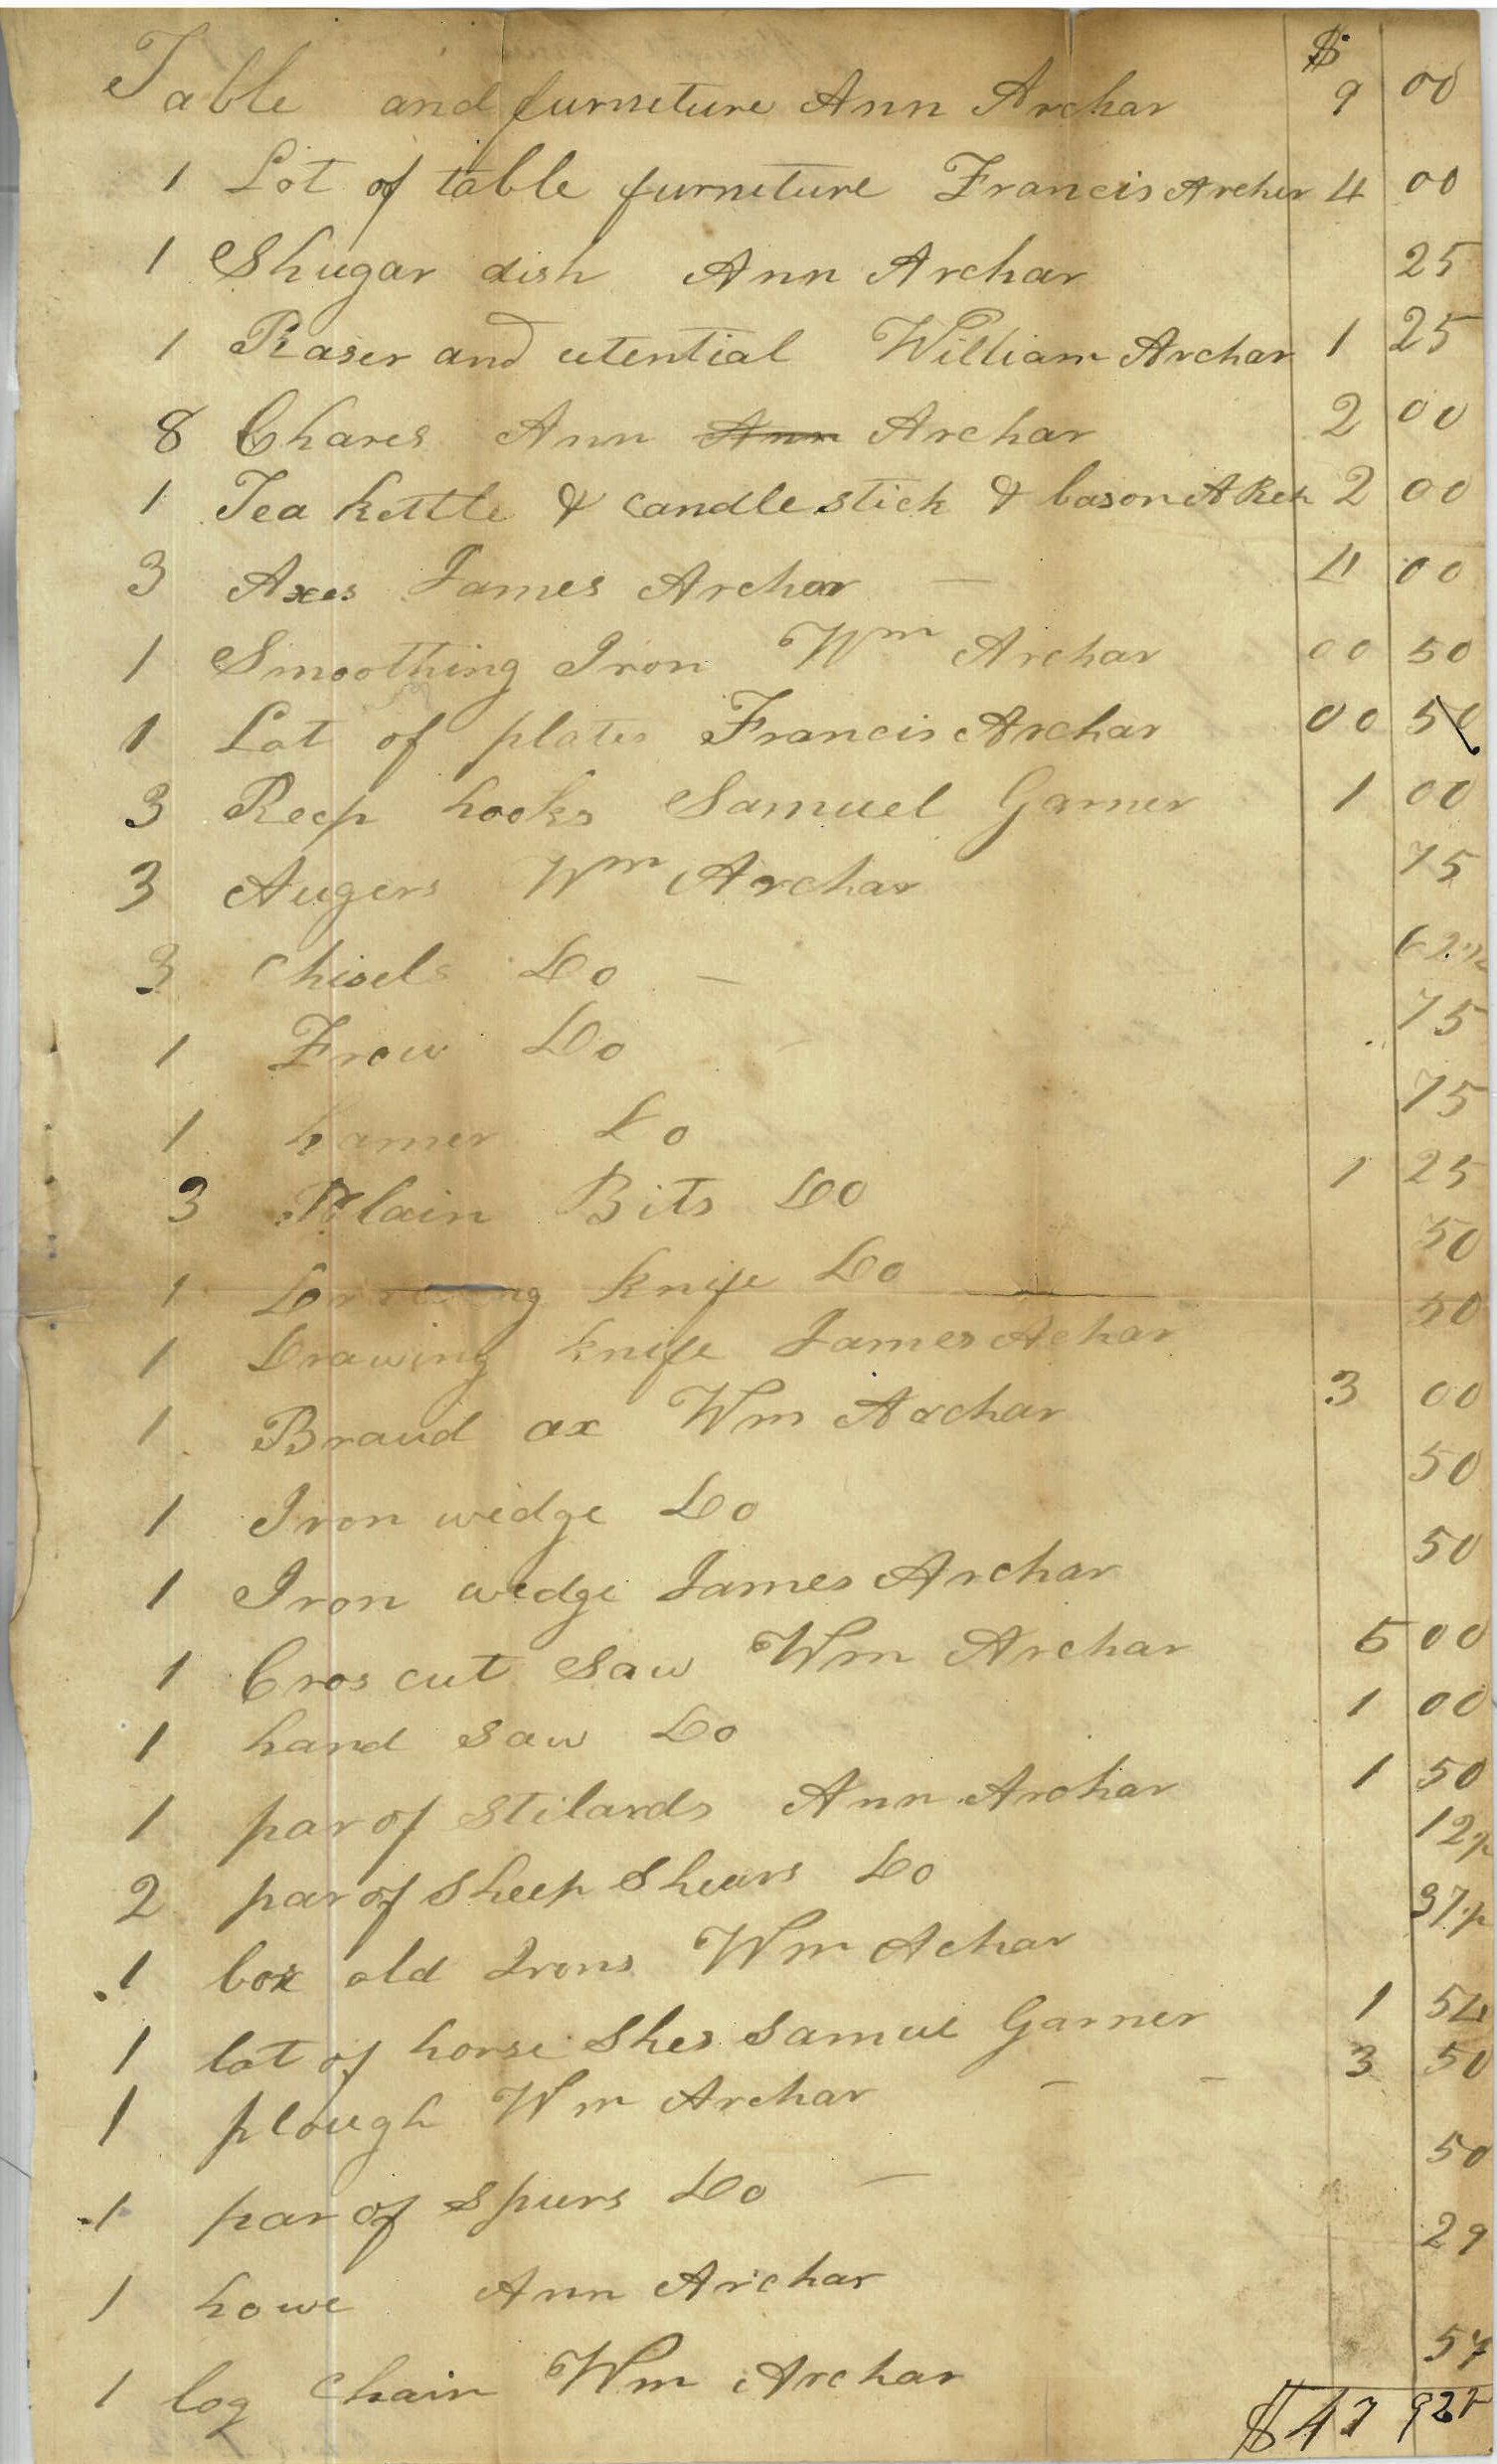 $
Table and furneture Ann Archar 9 00
1 Lot of table furneture Francis Archer 4 00
1 Shugar dish Ann Archar 25
1 Raser and utential William Archar 1 25
8 Chares Ann Ann Archar 2 00
1 Tea kettle & candle stick & bason A Rch 2 00
3 Axes James Archar 4 00
1 Smoothing Iron Wm Archar 00 50
1 Lot of plates Francis Archar 00 50
3 Reep hooks Samuel Garner 1 00
3 Augers Wm Archar 75
3 Chisels Do 62 1/2
1 Frow Do 75
1 hamer Do 75
3 Plain Bits Do 1 25
1 knife Do 50
1 Drawing knife James Achar 50
1 Braud ax Wm Archar 3 00
1 Iron wedge Do 50
1 Iron wedge James Archar 50
1 Cros cut Saw Wm Archar 5 00
1 hand saw Do 1 00
1 par of Stilards Ann Archar 1 50
2 par of Sheep Shears Do 12
1 box old Irons Wm Achar 37
1 lot of horse Shes Samuel Garner 1 54
1 plough Wm Archar 3 50
1 par of Spurs Do 50
1 howe Ann Archar 29
1 log Chain Wm Archar 57
$47 92